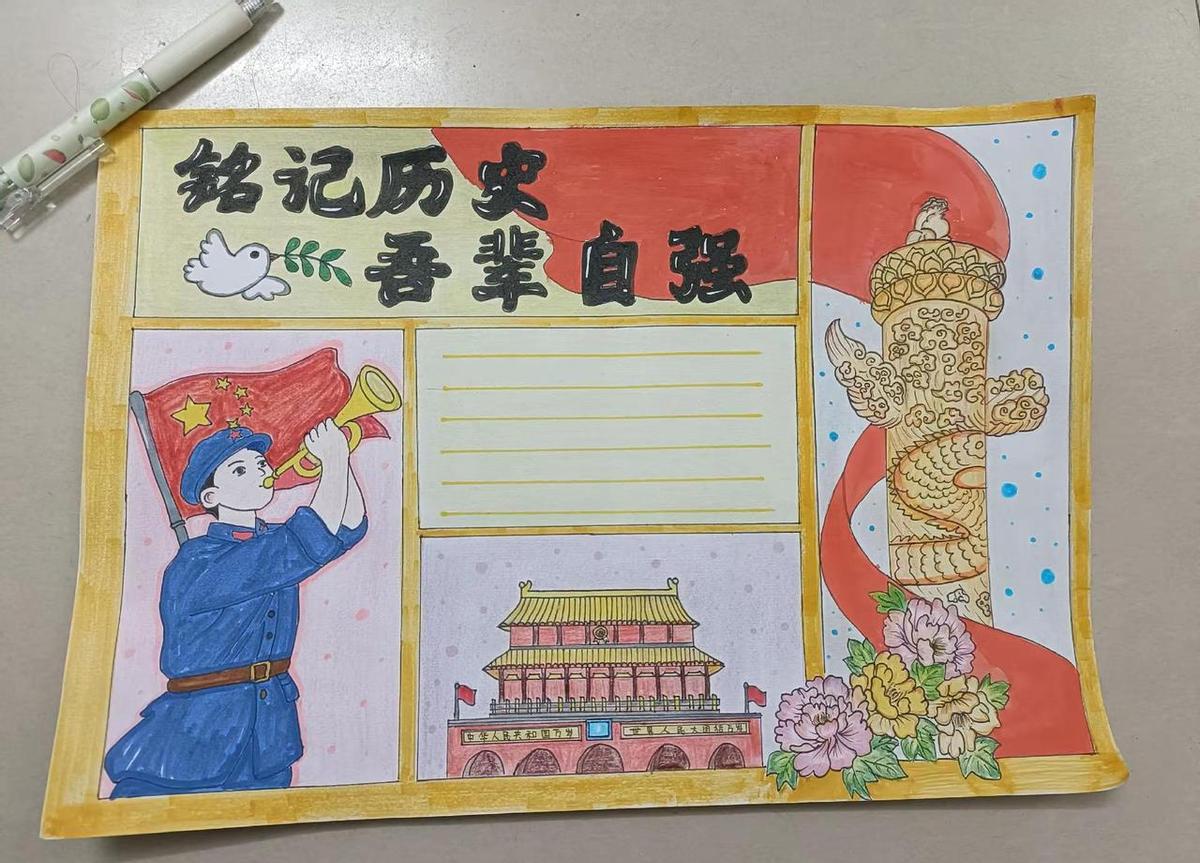 铭记历史
吾辈自强
中华人民共和国万岁
世界人民大团结万岁